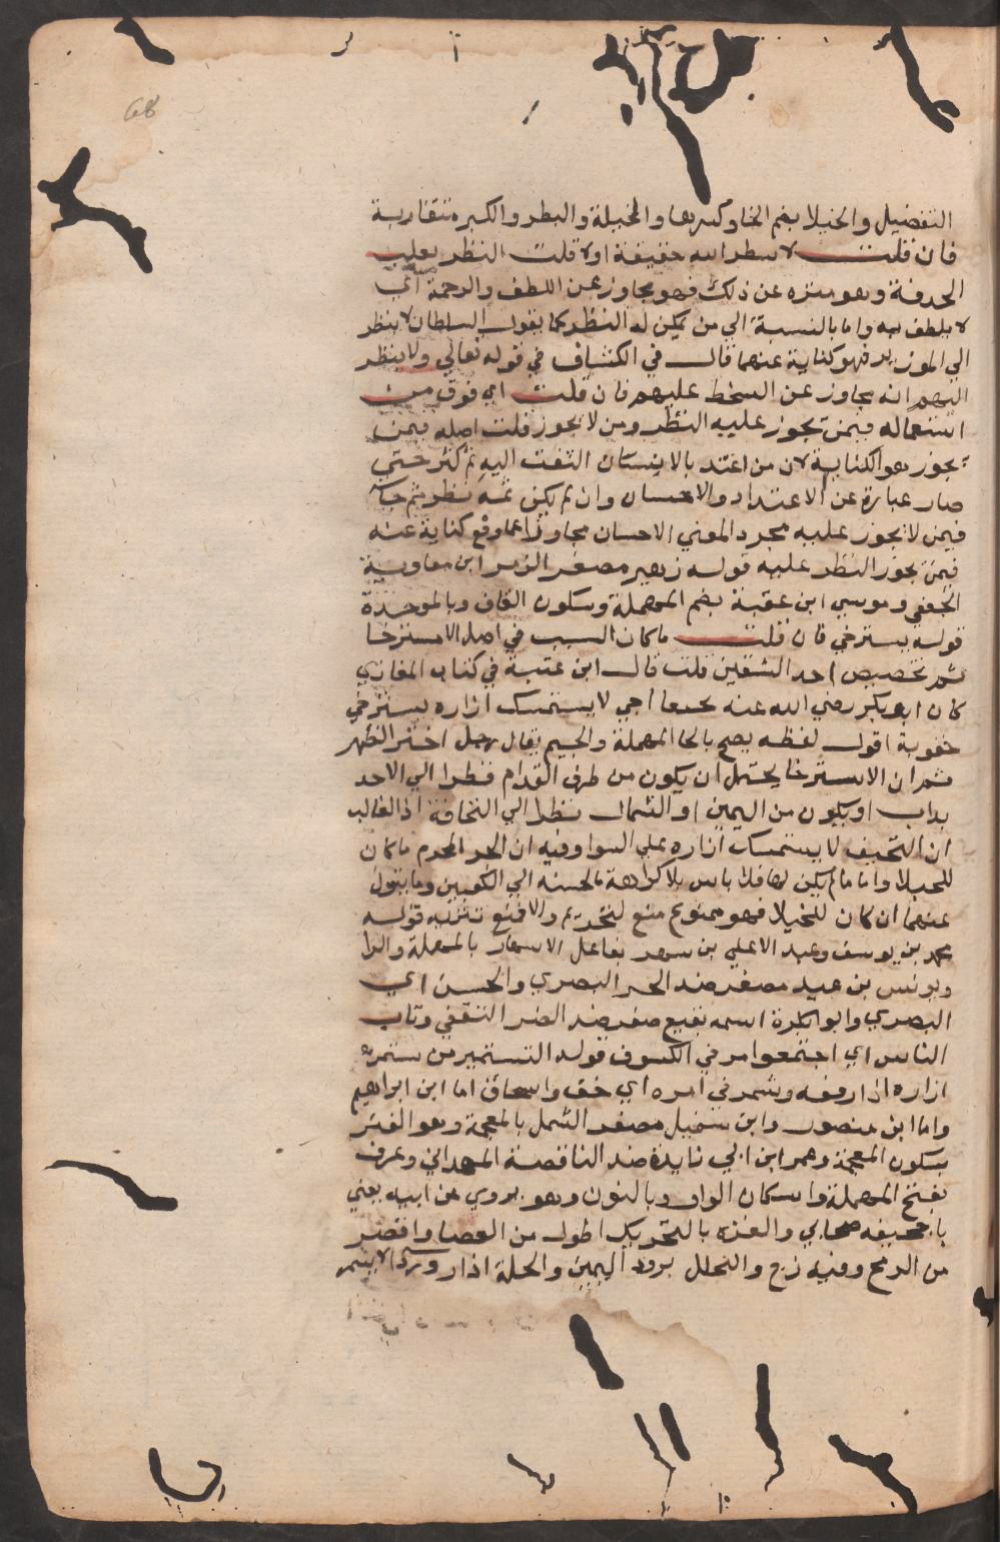 68
التفضيل والخيلا بضم الخا وكسرها والمخيلة والبطر والكبر متقاربة
فان قلت لا ينظر الله حقيقة اولا قلت النظر تقليب
الحدقة وهو منزه عن ذلك فهو مجاز عن اللطف والرحمة اي
لا يلطف به واما بالنسبة الي من يمكن له النظر كما يقول السلطان لا ينظر
الي الوزير فهو كناية عنهما قال في الكشاف في قوله تعالي ولا ينظر
اليهم انه مجاوز عن السخط عليهم فان قلت اي فرق بين
استعماله فيمن تجوز عليه النظر ومن لا يجوز قلت اصله فيمن
تجوز هو الكناية لان من اعتد بالانسان التفت اليه ثم كثر حتي
صار عبارة عن الاعتداد والاحسان وان لم يكن ثمه نظر ثم جا
فيمن لا تجوز عليه مجرد المعني الاحسان مجاوزا عما وقع كناية عنه
فيمن تجوز النظر عليه قوله زهير مصغر الزهر ابن معاوية
الجعفي وموسي ابن عقبة بضم المهملة وسكون القاف وبالموحدة
قوله يسترخي فان قلت ما كان السبب في اصل الاسترخا
ثم تخصيص احد الشقين قلت قال ابن عتيبة في كتاب المغازي
كان ابو بكر رضي الله عنه اجي لا يستمسك ازاره يسترخي
حقوبة اقول لفظه يصح بالحا المهملة والجيم يقال رجل الظهر
ثم ان الاسترخا يحتمل ان يكون من طرف القدام فنظرا الي الاحد
يداب او يكون من اليمين او الشمال نظرا الي النحافة اذ الغالب
ان النحيف لا يستمسك ازاره علي السوا وفيه ان الجر المحرم ما كان
للخيلا واما ما لم يكن لها فلا باس بلا كراهة مالحسنه الي الكعبين وما ينزل
عنهما ان كان للخيلا فهو ممنوع منع تحريم والا فمنع تنزيه قوله
محمد بن يوسف وعبد الاعلي بن بفاعل الاسعار بالمهملة والرا
ويونس بن عبيد مصغر ضد الحر البصري والحسن اي
البصري وابو بكرة اسمه نفيع مصغر ضد الضر الثقفي وثاب
الناس اي اجتمعوا مر في الكسوف قوله التشمير من شمر
ازاره اذا رفعه وشمر في امره اي خف واسحاق اما ابن ابراهيم
واما ابن منصور وابن شميل مصغر الشمل بالمعجمة وهو
بسكون المعجمة وعمر ابن ابي زايدة ضد الناقصة الهمداني وعون
بفتح المهملة واسكان الواو وبالنون وهو يروي عن ابيه يعني
با جحيفه صحابي والعنزه بالتحريك اطول من العصا واقصر
من الرمح وفيه زج والحلل برود اليمن والحلة ازار وردا لا يسمي